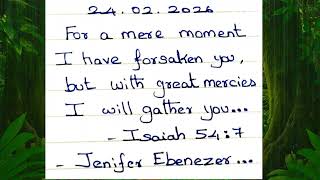 24.02.2026
For a mere moment
I have forsaken you,
but with great mercies
I will gather you...
- Isaiah 54:7
- Jenifer Ebenezer...